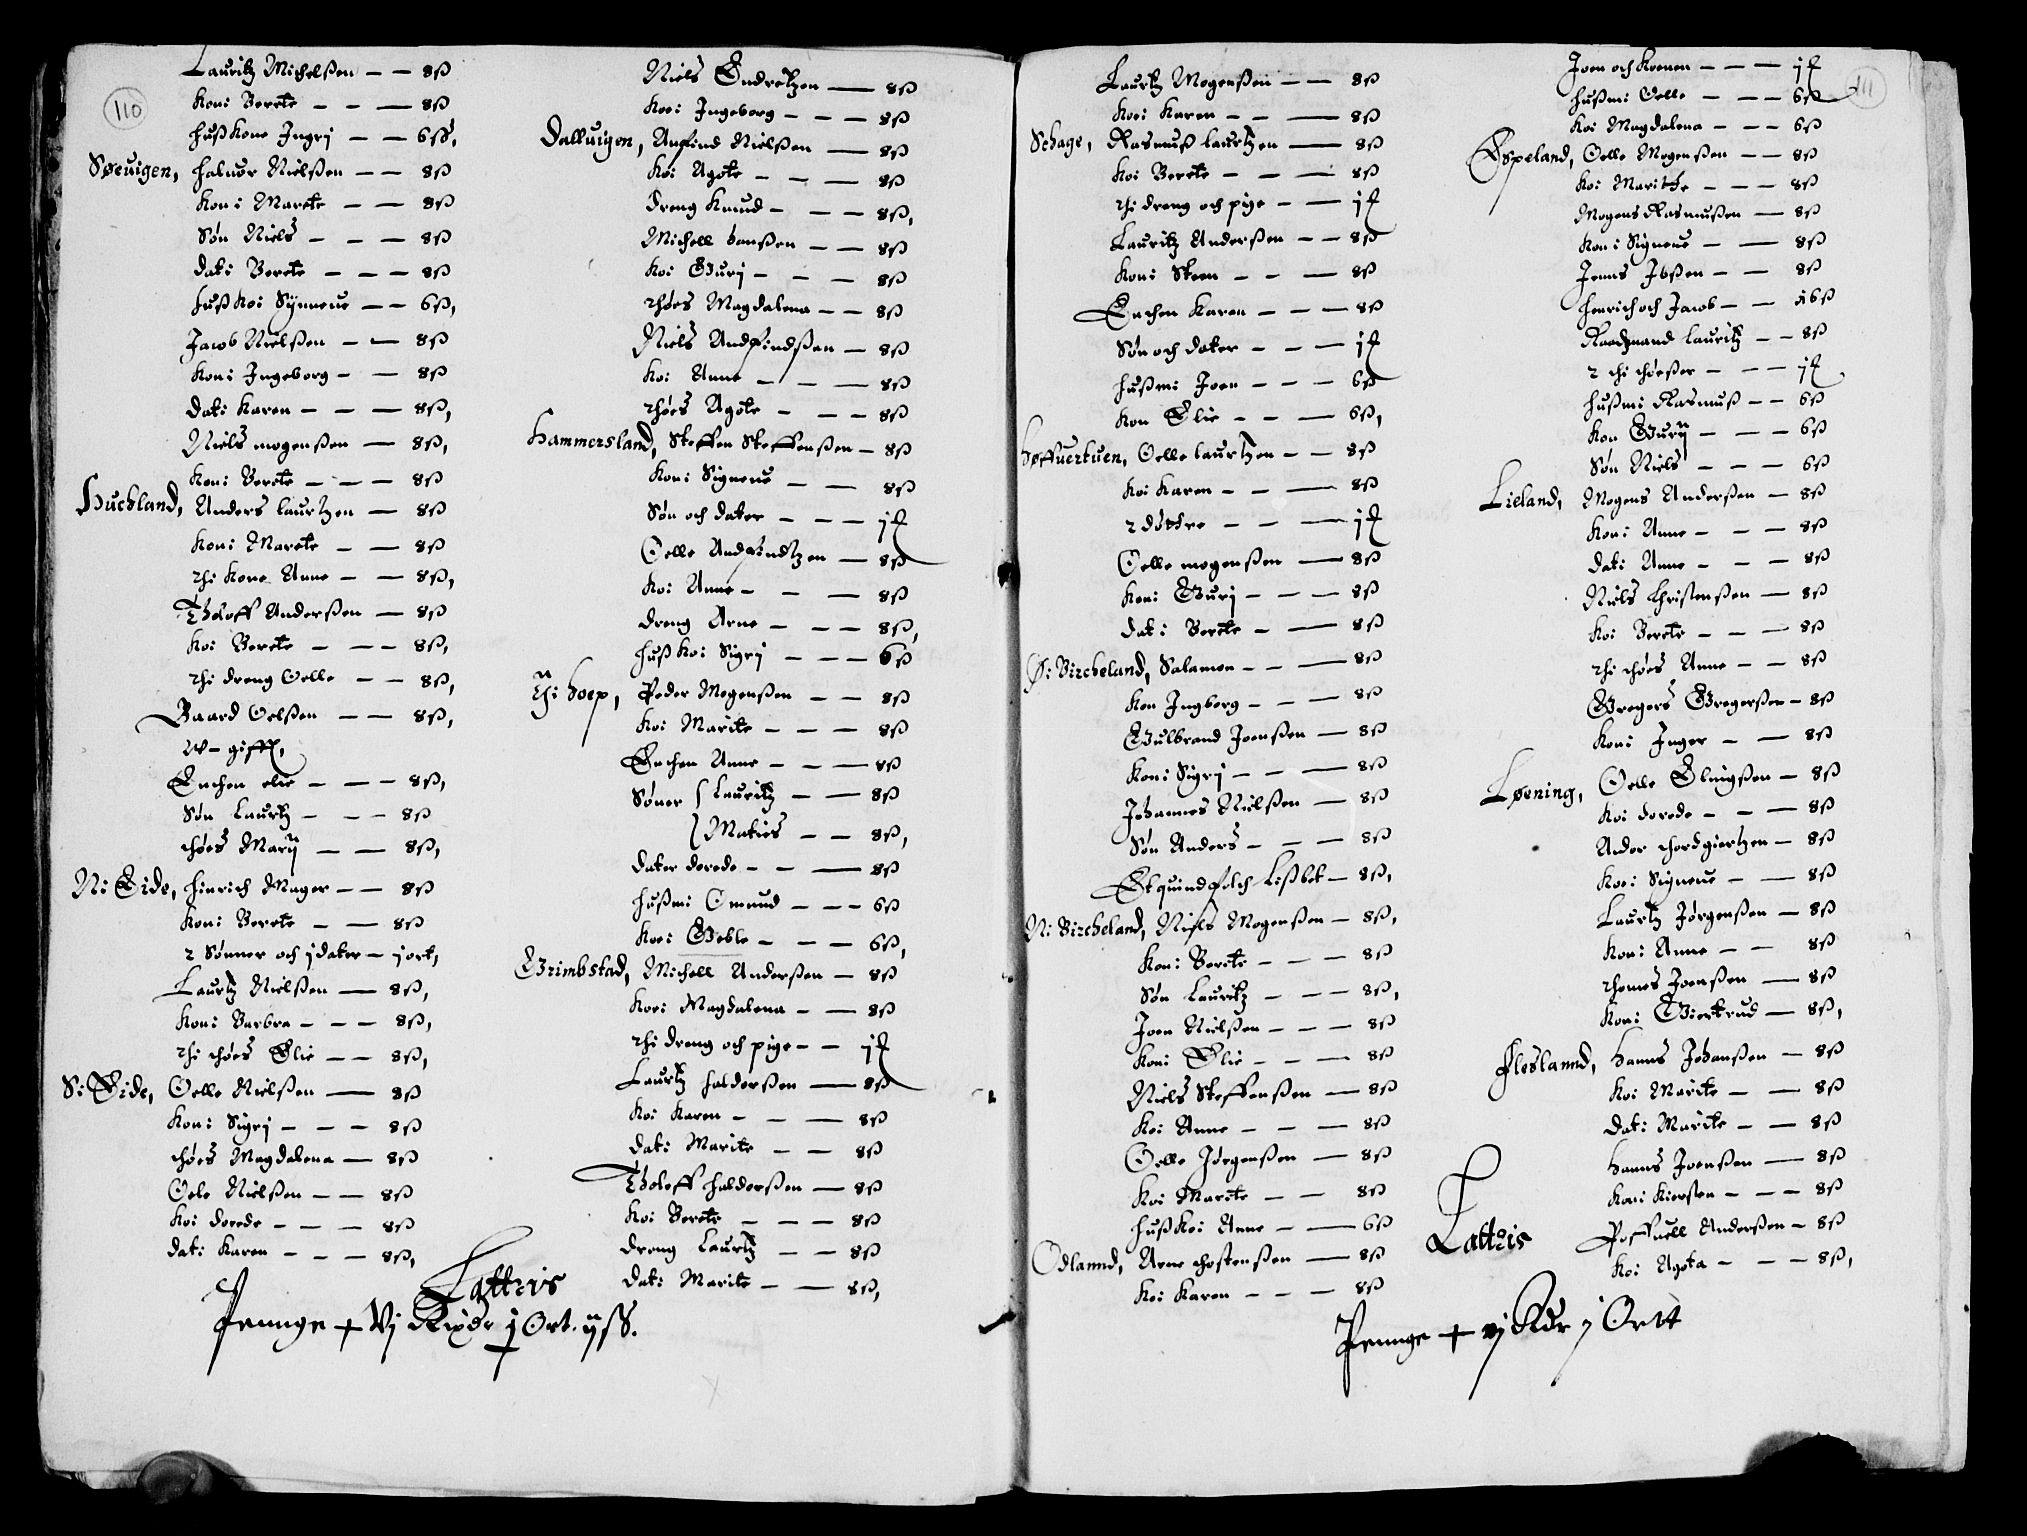 110
Lauritz Michelßen — — 8ß
Koni Berete — — — 8ß
Huß Kone Ingrj — — 6ß,
Søeuigen, Haluor Nielßen — — 8ß
Koni Marete — — 8ß
Søn Niels — — — 8ß
Dat: Berete — — — 8ß
Huß Koi Synneue — — 6ß,
Jacob Nielßen — — 8ß
Koni Ingeborg — — 8ß
Dat: Karen — — — 8ß,
Niels mogenßen — 8ß,
Koni Berete — — — 8ß
Huchland, Anders laurtzen — 8ß
Koni Marete — — 8ß
thi Kone Anne — — 8ß,
Tholoff Anderßen — 8ß
Koi Berete — — — 8ß,
thi dreng Oelle — — 8ß,
Baard Oelßen — — 8ß,
W- gifft,
Enchen elie — — — 8ß,
Søn Laurtz — — — 8ß
thøes Marÿ — — 8ß,
N: Eide, Hinrich Mager — — 8ß
Koni Berete — — 8ß
2 Sønner och j dater — j ort,
Laurtz Nielßen — 8ß,
Koni Barbra — — — 8ß,
thi thøes Elie — — 8ß,
S: Eide, Oelle Nielßen — 8ß
Kon: Sigrj — — — 8ß
thøes Magdalena — 8ß
Oele Nielßen — — 8ß
Koi dorede — — — 8ß
Dat: Karen — — — 8ß,
Niels Endretzen — 8ß
Koei Ingeborg — — — 8ß
Dalluigen, Anfind Nielßen — 8ß
Koi Agote — — — 8ß
Dreng Knud — — — 8ß,
Michell hanßen — — 8ß
Koi Gurj — — — 8ß
thøes Magdalena — — 8ß
Niels Andfindßen — 8ß
Koi Anne — — — 8ß
thøes Agote — — — 8ß
Hammersland, Steffen Steffenßen — 8ß
Koni Signeue — — 8ß
Søn och dater — — — j ꝶ
Oelle Andfindtzen — 8ß
Koi Anne — — — 8ß
Dreng Arne — — — 8ß,
Huß Koi Sigrj — — — 6ß
Ÿ: Hoep, Peder Mogenßen — — 8ß
Koi Marite — — — 8ß
Enchen Anne — — — 8ß
Søner { Lauritz — — 8ß
{ Maties — — 8ß,
Dater dorede — — — 8ß
Hußmi Omund — — — 6ß
Koei Gøble — — — 6ß,
Grimbstad, Michell Anderßen — 8ß
Koei Magdalena — — 8ß
thi dreng och pige — — j ꝶ
Laurtz Halderßen — 8ß
Koi Karen — — — 8ß
Dat: Marite — — 8ß
Tholeff Halderßen — 8ß
Koi Berete — — — 8ß
Dreng Laurtz — — 8ß
Dat: Marite — — — 8ß,
Lattris
Penge + Vj Rixdr j Ort. ijß.
111
Laurtz Mogenßen — — 8ß
Koei Karen — — — 8ß
Schage, Rasmuß laurtzen — 8ß
Koi Berete — — — 8ß
thi dreng och pige — — j ꝶ
Lauritz Anderßen — — 8ß
Koni Steen — — — 8ß
Enchen Karen — — — 8ß
Søn och dater — — — j ꝶ
Hußmi Joen — — — 6ß
Kon Elie — — — 6ß,
Høffuertuen, Oelle laurtzen — — 8ß
Koi Karen — — — 8ß
2 døttre — — — j ꝶ
Oelle mogenßen — 8ß
Koni Gurj — — — 8ß
Dat: Berete — — 8ß
Ø: Bircheland, Salamon — — — 8ß
Kon Ingborg — — — 8ß
Gulbrand Joenßen — 8ß
Koni Sigrj — — — 8ß
Johannes Nielßen — 8ß
Søn Anders — — — 8ß
Et quindfolch Lißbet — 8ß,
N: Bircheland, Niels Mogenßen — 8ß,
Kon: Berete — — — 8ß
Søn Lauritz — — — 8ß,
Joen Nielßen — — — 8ß
Koni Elie — — — 8ß
Niels Steffenßen — 8ß
Koi Anne — — — 8ß
Oelle Jørgenßen — 8ß
Koi Marete — — 8ß
Huß Koi Anne — — 6ß
Odlannd, Arne thostenßen — 8ß
Koi Karen — — — 8ß
Joen och Konen — — — j ꝶ
Hußmi Oelle — — — 6ß
Koi Magdalena — — — 6ß
Espeland, Oelle Mogenßen — — 8ß
Koi Marithe — — — 8ß
Mogens Rasmußen — 8ß
Koni Signeue — — 8ß
Jenns Ibßen — — 8ß
Henrich och Jacob — — 16ß
Raadzmand Lauritz — — 8ß
2 thi thøeßer — — — j ꝶ,
Hußmi Rasmuß — — 6ß
Kon Gurÿ — — — 6ß
Søn Niels — — — 6ß
Lieland, Mogens Anderßen — 8ß
Koni Anne — — — 8ß
Dat: Anne — — — 8ß
Niels Christenßen — 8ß
Koi Berete — — — 8ß
thi thøes Anne — — 8ß
Gregers Gregerßen — 8ß
Koni Inger — — 8ß
Løening, Oelle Elingßen — 8ß
Koi dorede — — — 8ß
Ander thordgiertzen — 8ß
Koei Signeue — — 8ß
Laurtz Jørgenßen — 8ß
Kon: Anne — — 8ß
thomes Joenßen — 8ß
Kon: Giertrud — 8ß,
Fleslannd, Hanns Johanßen — 8ß
Koi Marite — — 8ß
Dat: Marite — — 8ß
Hanns Joenßen — 8ß
Koni Kiersten — — — 8ß
Poffuell Anderßen — 8ß
Koi Agota — — — 8ß,
Lattris
Penge + vj Rdr j Ortt